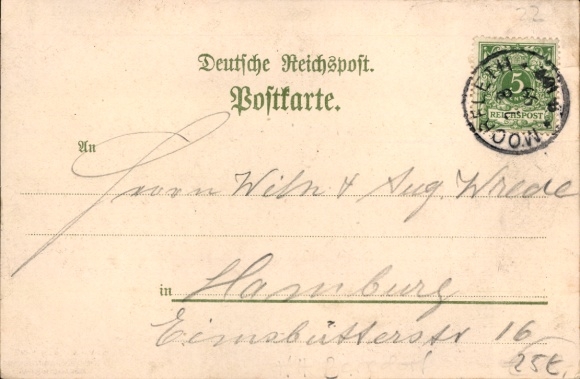 22
Deutsche Reichspost.
Postkarte.
5
REICHSPOST
MOORFLETH
An
Herrn Wilh & Aug. Wrede
in Hamburg
Eimsbüttlerstr 16
25€